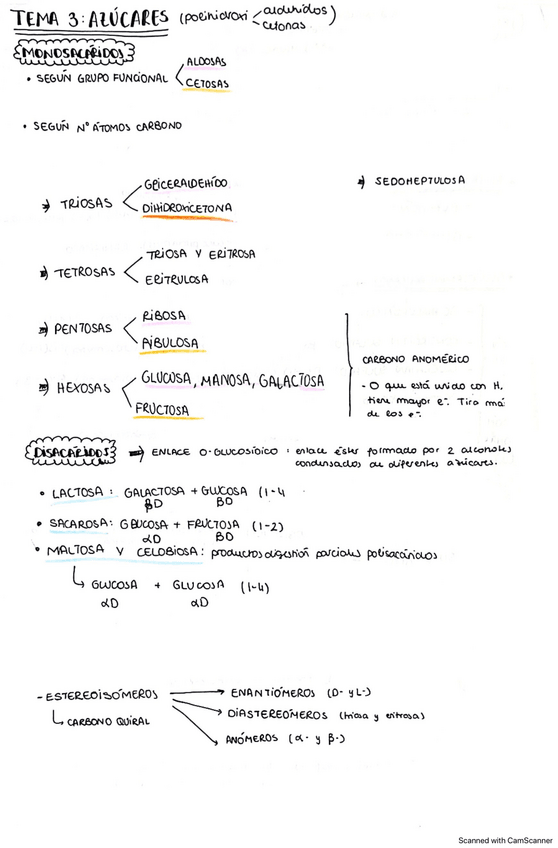 TEMA 3: AZÚCARES (polihidroxi aldehídos
cetonas)
MONOSACÁRIDOS
• SEGÚN GRUPO FUNCIONAL
ALDOSAS
CETOSAS
• SEGÚN Nº ÁTOMOS CARBONO
⇒ TRIOSAS
GLICERALDEHÍDO
DIHIDROXICETONA
⇒ SEDOHEPTULOSA
⇒ TETROSAS
TRIOSA Y ERITROSA
ERITRULOSA
⇒ PENTOSAS
RIBOSA
RIBULOSA
⇒ HEXOSAS
GLUCOSA, MANOSA, GALACTOSA
FRUCTOSA
CARBONO ANOMÉRICO
- O que está unido con H,
tiene mayor e-. Tira más
de los e-.
DISACÁRIDOS ⇒ ENLACE O-GLUCOSÍDICO: enlace éster formado por 2 alcoholes
condensados de diferentes azúcares.
• LACTOSA: GALACTOSA + GLUCOSA (1-4
βD βD
• SACAROSA: GLUCOSA + FRUCTOSA (1-2)
αD βD
• MALTOSA Y CELOBIOSA: productos digestión parciales polisacáridos
↳ GLUCOSA + GLUCOSA (1-4)
αD αD
- ESTEREOISÓMEROS
↳ CARBONO QUIRAL
→ ENANTIÓMEROS (D- y L-)
→ DIASTEREÓMEROS (triosa y eritrosa)
→ ANÓMEROS (α- y β-)
Scanned with CamScanner